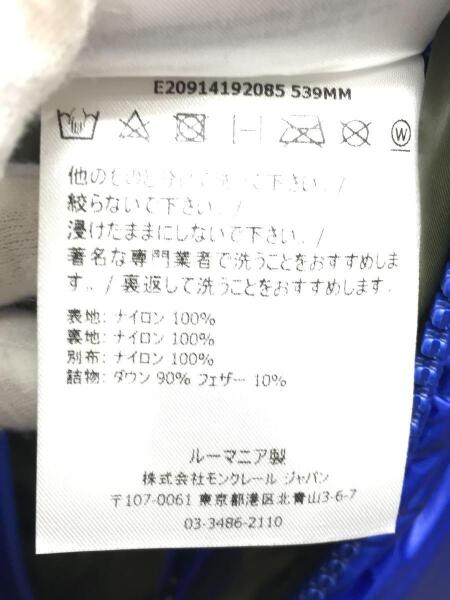 E20914192085 539MM
W
他のものと分けて洗って下さい. /
絞らないで下さい. /
浸けたままにしないで下さい. /
著名な専門業者で洗うことをおすすめしま
す.. / 裏返して洗うことをおすすめします.
表地: ナイロン 100%
裏地: ナイロン 100%
別布: ナイロン 100%
詰物: ダウン 90% フェザー 10%
ルーマニア製
株式会社モンクレール ジャパン
〒107-0061 東京都港区北青山3-6-7
03-3486-2110